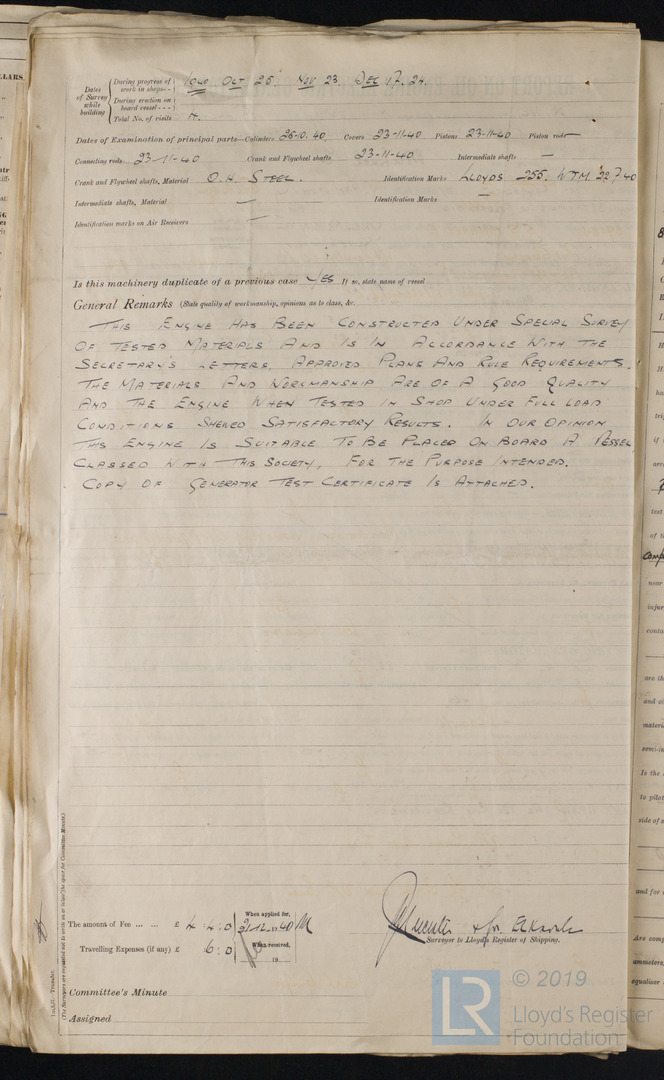 Dates of Survey while building
During progress of work in shops - - 1940 Oct 25. Nov 23 Dec 17. 24
During erection on board vessel - - -
Total No. of visits 4.
Dates of Examination of principal parts—Cylinders 25-10-40 Covers 23-11-40 Pistons 23-11-40 Piston rods —
Connecting rods 23-11-40 Crank and Flywheel shafts 23-11-40 Intermediate shafts —
Crank and Flywheel shafts, Material O.H. STEEL. Identification Marks LLOYDS 255. W.T.M. 22.7.40
Intermediate shafts, Material — Identification Marks —
Identification marks on Air Receivers —
Is this machinery duplicate of a previous case YES If so, state name of vessel
General Remarks (State quality of workmanship, opinions as to class, &c.
THIS ENGINE HAS BEEN CONSTRUCTED UNDER SPECIAL SURVEY
OF TESTED MATERIALS AND IS IN ACCORDANCE WITH THE
SECRETARY'S LETTERS, APPROVED PLANS AND RULE REQUIREMENTS.
THE MATERIALS AND WORKMANSHIP ARE OF A GOOD QUALITY
AND THE ENGINE WHEN TESTED IN SHOP UNDER FULL LOAD
CONDITIONS SHEWED SATISFACTORY RESULTS. IN OUR OPINION
THIS ENGINE IS SUITABLE TO BE PLACED ON BOARD A VESSEL
CLASSED WITH THIS SOCIETY, FOR THE PURPOSE INTENDED.
COPY OF GENERATOR TEST CERTIFICATE IS ATTACHED.
The amount of Fee ... ... £ 4 : 4 : 0
When applied for, 31.12.1940
Travelling Expenses (if any) £ 6 : 0
When received, 19
Surveyor to Lloyd's Register of Shipping.
Committee's Minute
Assigned
(The Surveyors are requested not to write on or below the space for Committee's Minute.)
© 2019
LR
Lloyd's Register
Foundation